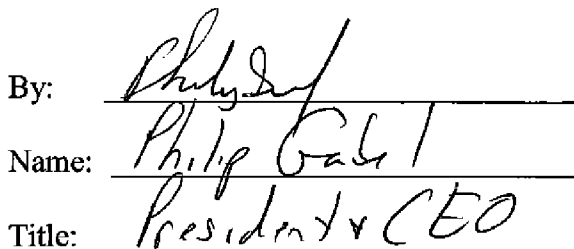 By:
Name: Philip
Title: President & CEO